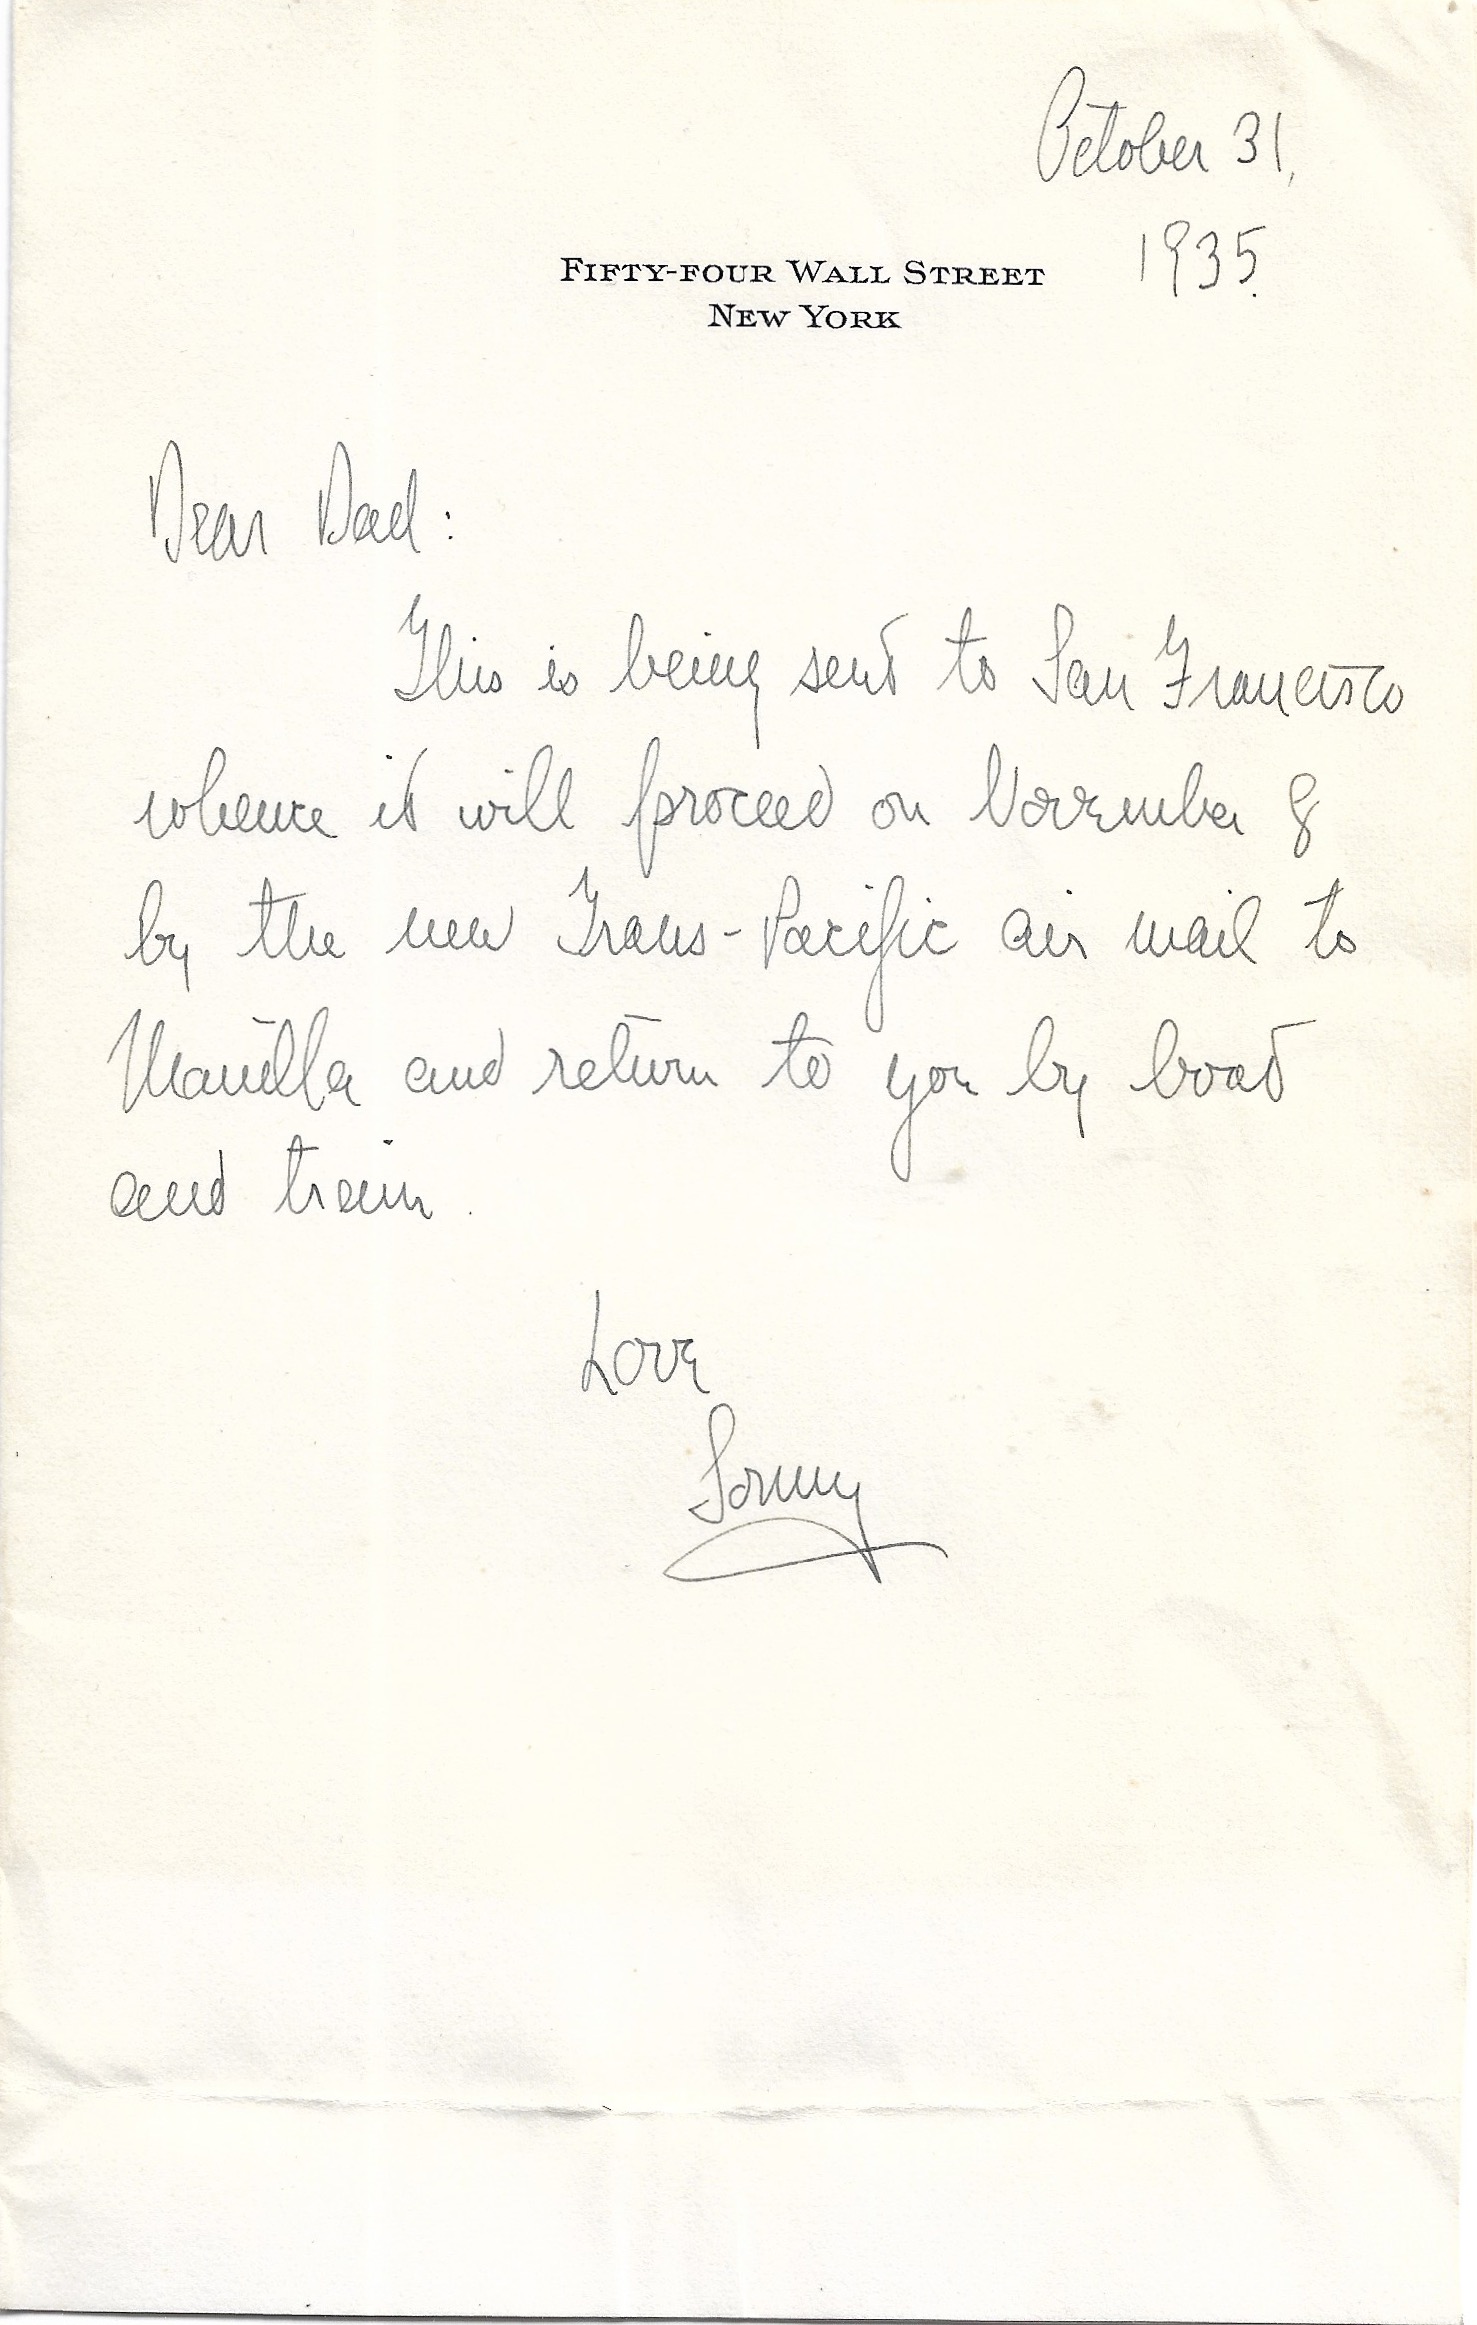 October 31,
1935.
FIFTY-FOUR WALL STREET
NEW YORK
Dear Dad:
This is being sent to San Francisco
whence it will proceed on November 8
by the new Trans-Pacific air mail to
Manilla and return to you by boat
and train.
Love
Sonny